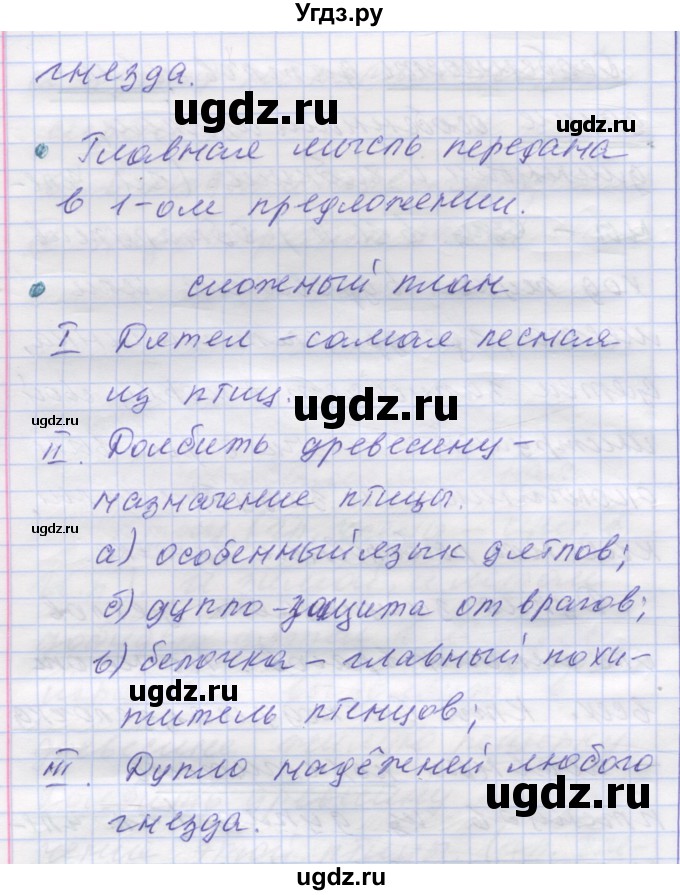 Угдз.ру
гнезда.
ugdz.ru
• Главная мысль передана
в 1-ом предложении.
• сложный план
I Дятел - самая лесная
из птиц.
ugdz.ru
ugdz.ru
II. Долбить древесину -
назначение птицы.
ugdz.ru
а) особенный язык дятлов;
б) дупло - защита от врагов;
в) белочка - главный похи-
ugdz.ru
титель птенцов;
III. Дупло надёжней любого
ugdz.ru
гнезда.
Угдз.ру